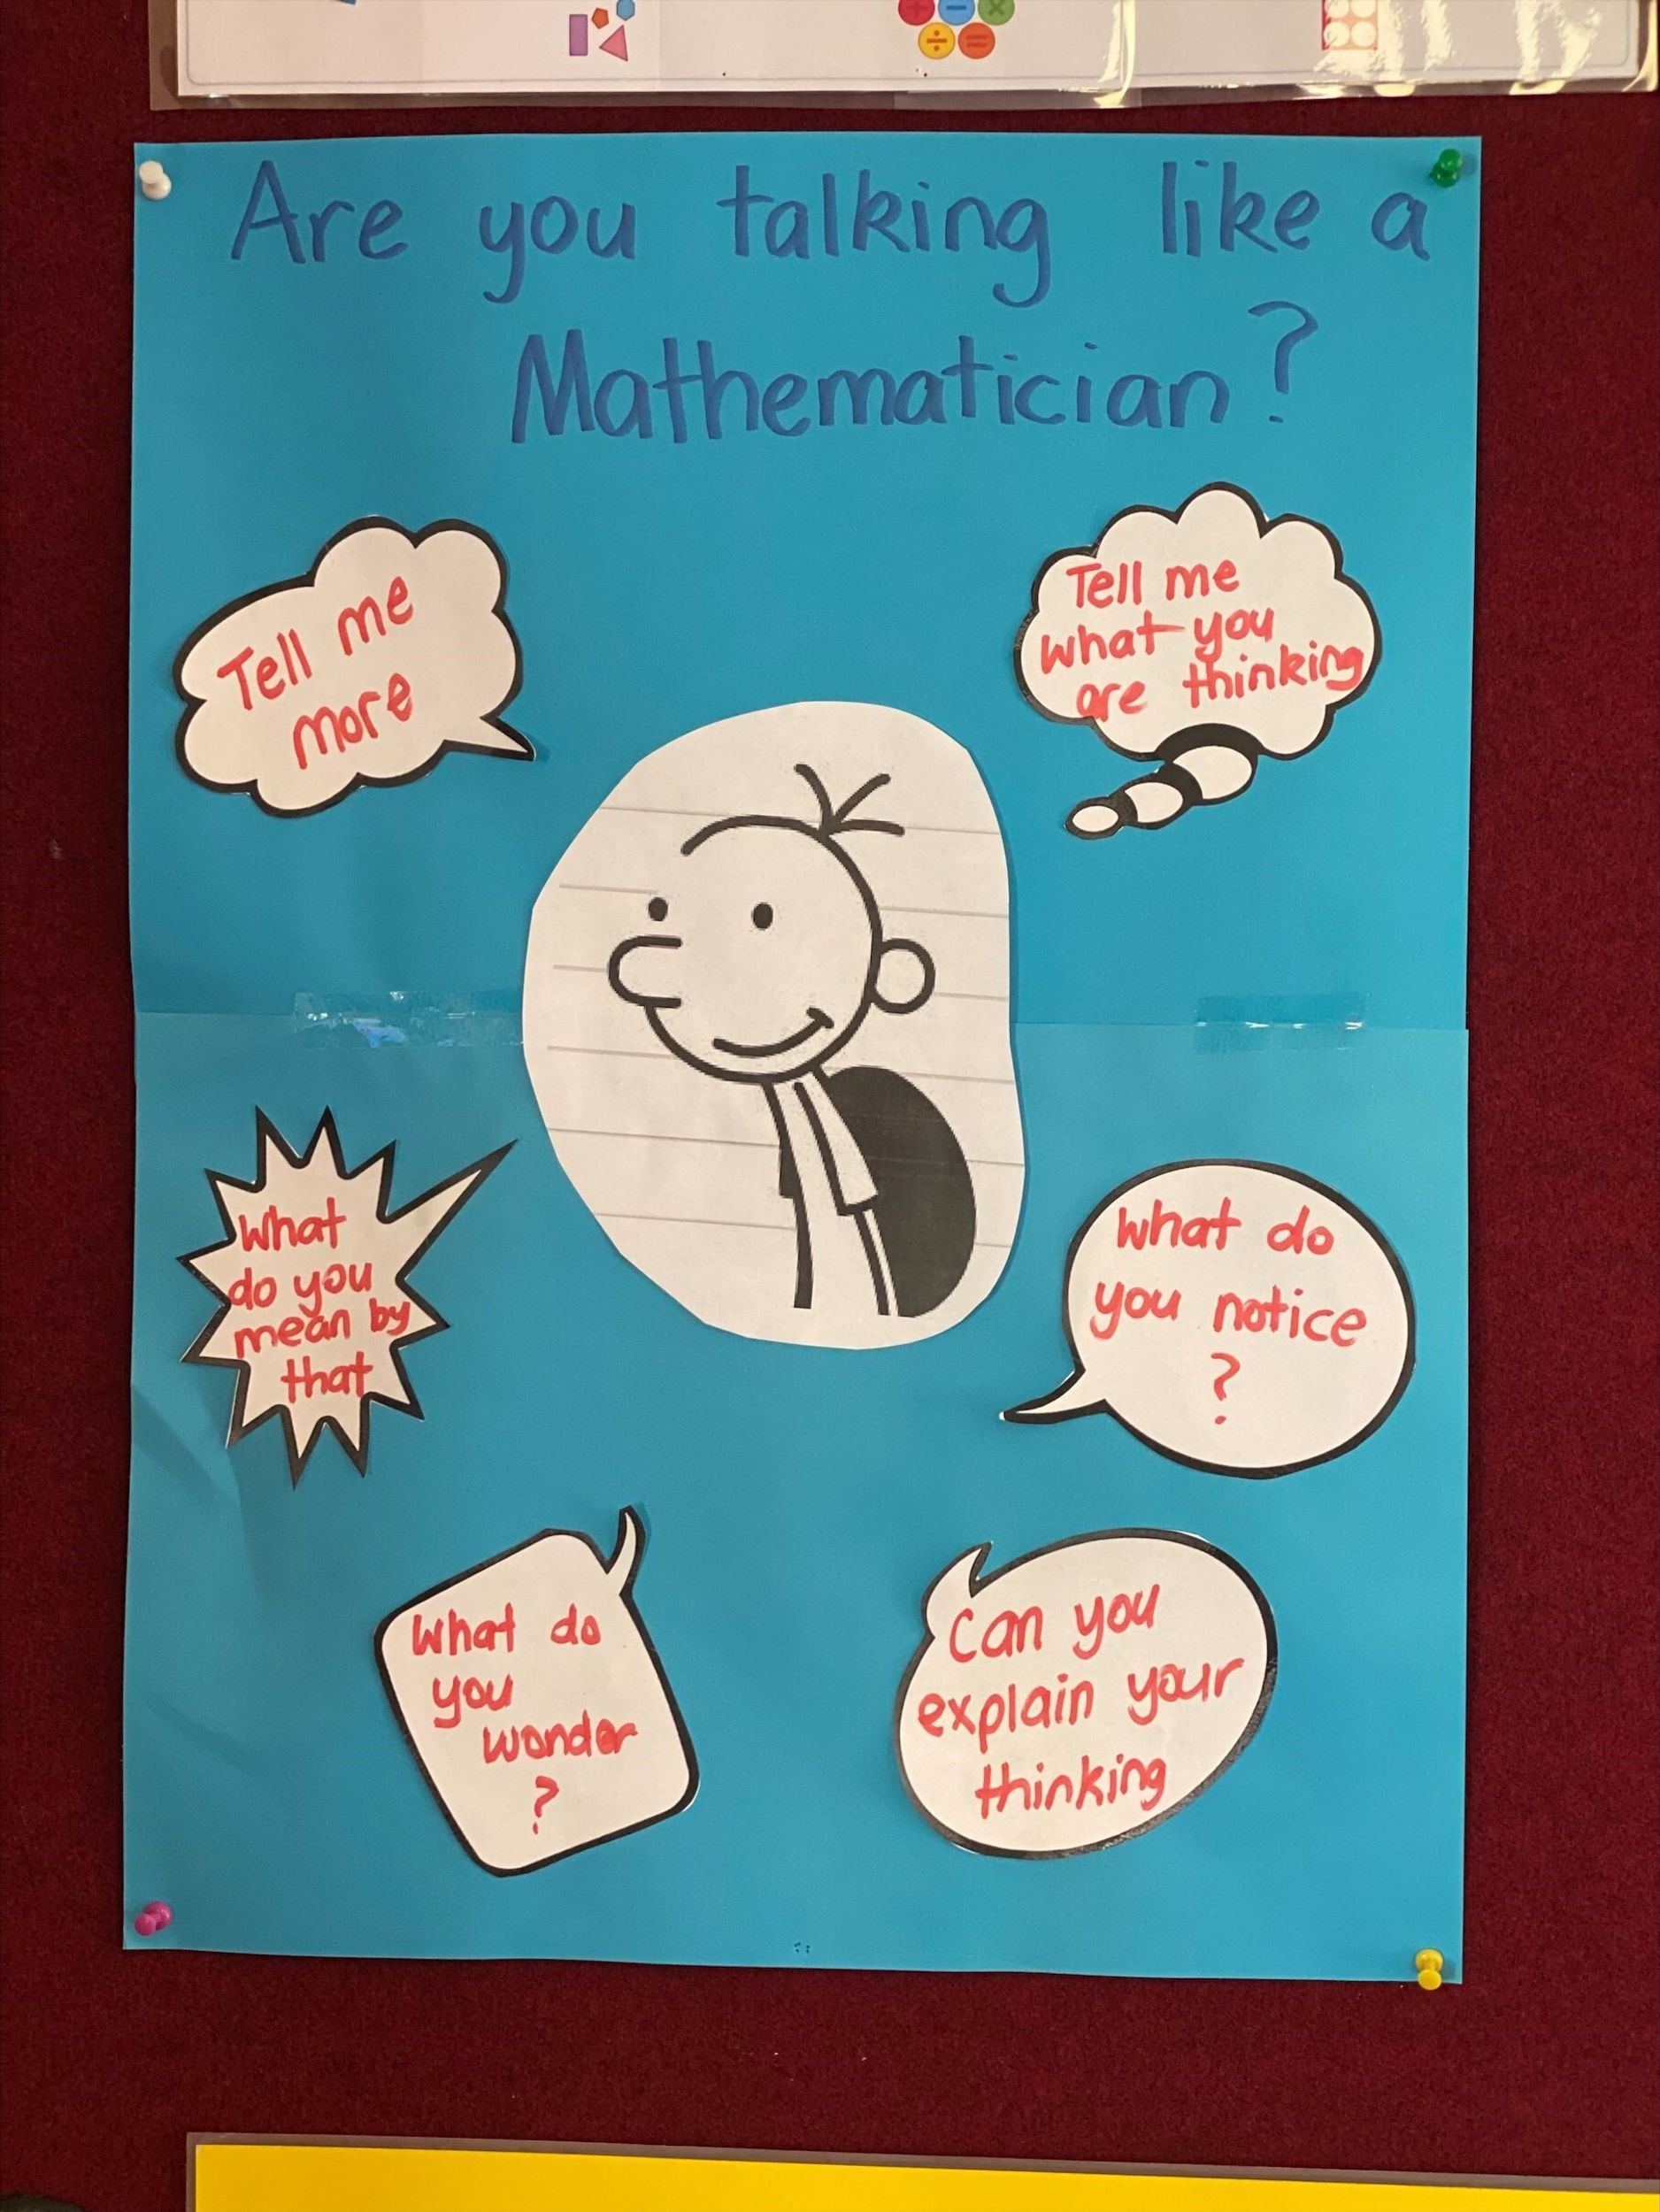 Are you talking like a
Mathematician?
Tell me
more
Tell me
what you
are thinking
What
do you
mean by
that
What do
you notice
?
What do
you
wonder
?
Can you
explain your
thinking